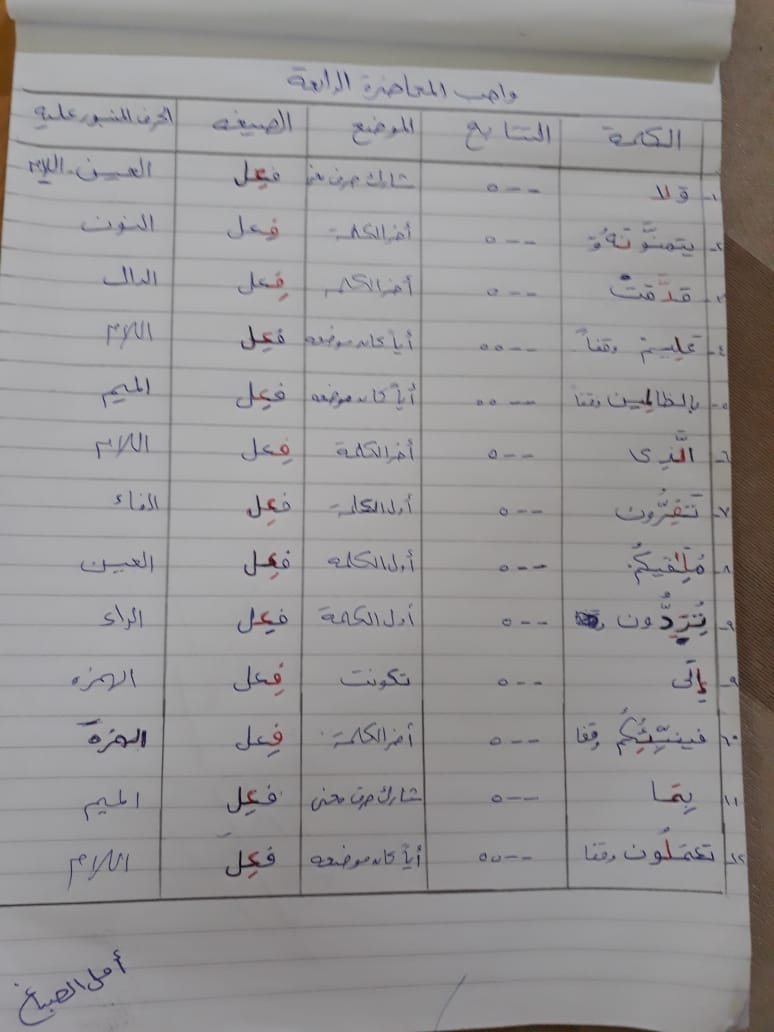 واجب المحاضرة الرابعة
الكلمة التتابع الموضع الصيغه الحرف المنبور عليه
١- ولا --٥ شارك حرف معنى فَعِل العين - اللام
٢- يتمنَّوْنَهُۥ --٥ أخر الكلمة فِعل النون
٣- --٥ أخر الكلمة فِعل الدال
٤- عليم وقفاً --٥٥ أياً كان موضعه فعِل اللام
٥- بالظالمين وقفا --٥٥ أياً كان موضعه فعِل الميم
٦- الَّذِى --٥ أخر الكلمة فِعل اللام
٧- تَفِرُّون --٥ أول الكلمة فعِل الفاء
٨- مُلَٰقيكُمْ --٥ أول الكلمة فعِل العين
٩- تُرَدُّون --٥ أول الكلمة فعِل الراء
٩- إِلَى --٥ تكونت فِعل الهمزه
١٠- فينبِّئُكُمْ وقفا --٥ أخر الكلمة فِعل الهمزة
١١ بِمَا --٥ شارك حرف معنى فعِل الميم
١٢- تعملُون وقفا --٥٥ أياً كان موضعه فعِل اللام
أمل الصباغ